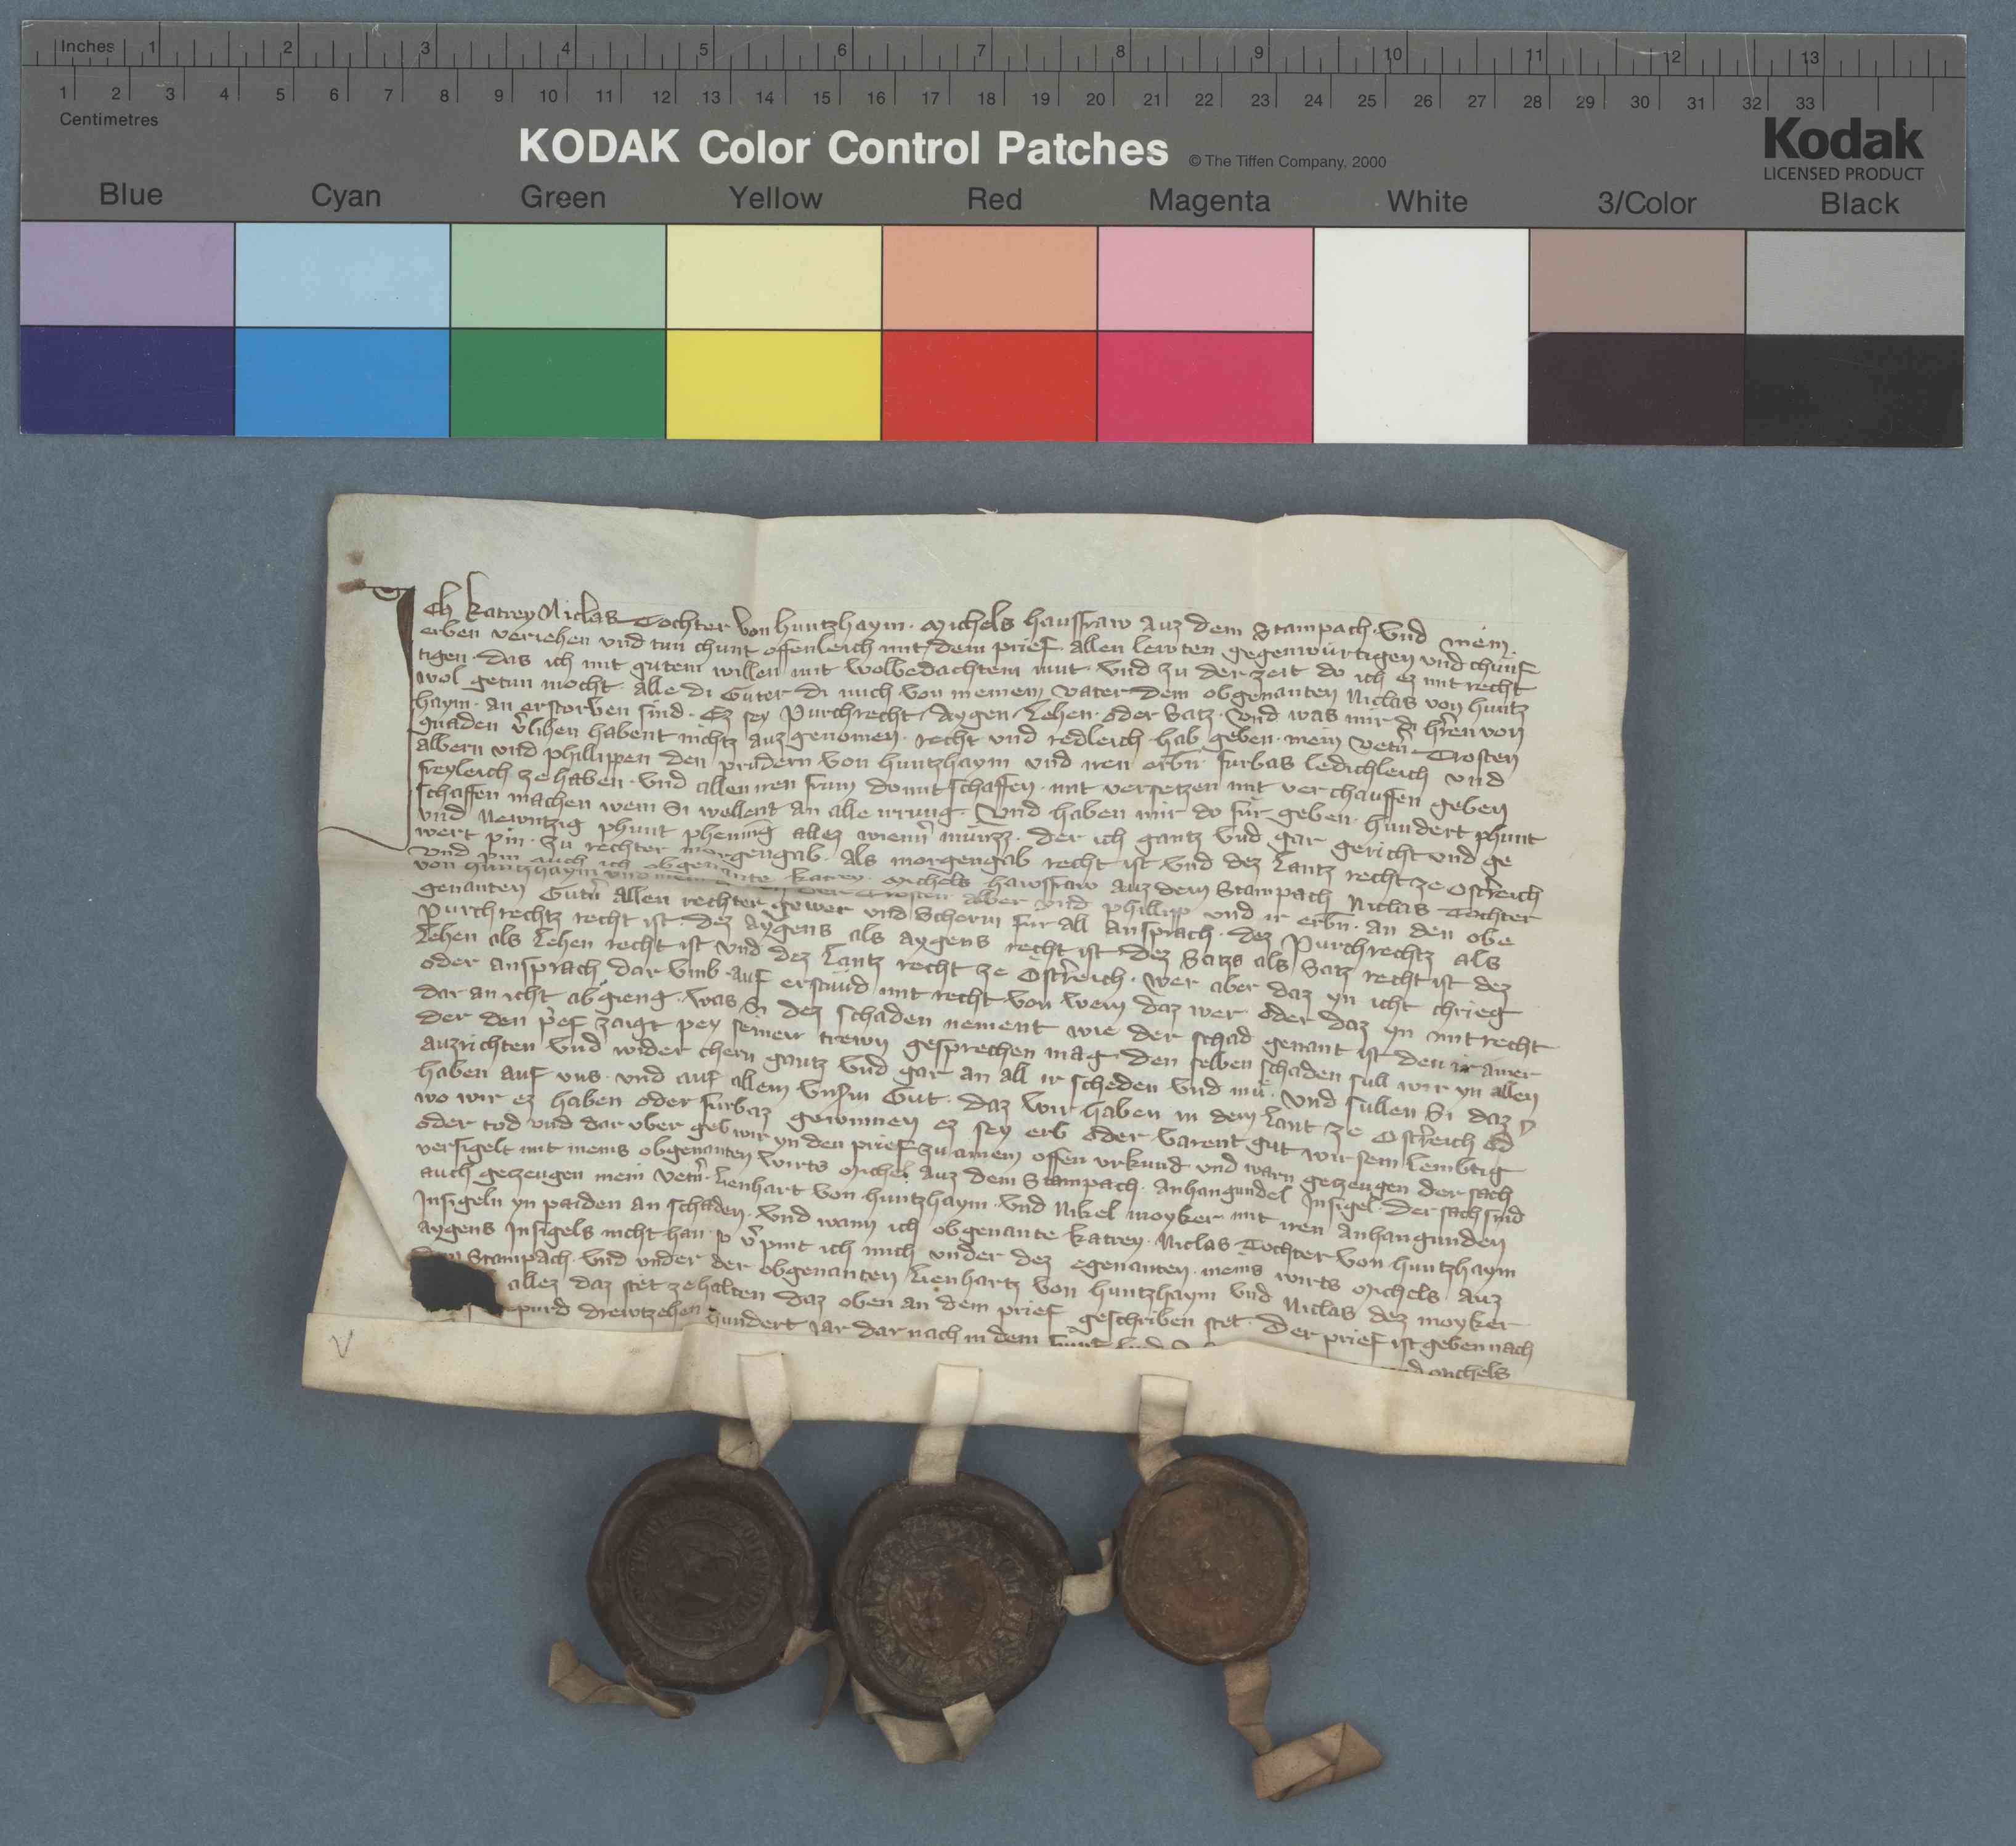 Inches 1 2 3 4 5 6 7 8 9 10 11 12 13
1 2 3 4 5 6 7 8 9 10 11 12 13 14 15 16 17 18 19 20 21 22 23 24 25 26 27 28 29 30 31 32 33
Centimetres
KODAK Color Control Patches © The Tiffen Company, 2000
Kodak
LICENSED PRODUCT
Blue Cyan Green Yellow Red Magenta White 3/Color Black
Ich katrey Niclas Tochter von huntzhaym · Michels hausfraw Auz dem Stampach · Vnd mein
erben veriehen vnd tun chunt offenleich mit dem prief · allen lewten gegenwürtigen vnd chunf
tigen · das ich mit gutem willen mit wolbedachtem mut · vnd zu der zeit do ich ez mit recht
wol getun mocht · alle di Guter di mich von meinem vater dem obgenanten Niclas von huntz
haym · an erstorben sind · Ez sey Purchrecht / Aygen / Lehen · oder Satz · vnd was mir di h̄ren von
gnaden v̄lihen habent nichtz auzgenomen · recht vnd redleich hab geben · mein vet̄n Trosten
albern vnd phillippen den prudern von huntzhaym vnd iren erb̄n furbas ledichleich vnd
freyleich ze haben · vnd allen iren frum do mit schaffen · mit versetzen mit verchauffen geben
schaffen machen wem Si wellent an alle irrung · Vnd haben mir do für geben · hundert phunt
vnd Newntzig phunt phening allez wienn̄ münzz · der ich gantz vnd gar gericht vnd ge
wert pin · zu rechter morgengab · Als morgengab recht ist vnd dez Lantz recht ze Ost̄reich
vnd pin auch ich obgenante katrey · Michels hawsfraw auz dem Stampach Niclas Tochter
von huntzhaym vnd mein Trosten Alber vnd phillipp vnd ir erb̄n · an den obe
genanten Gut̄n allen rechter gewer vnd Scherm für all Ansprach · dez Purchrechtz als
Purchrechtz recht ist · dez Aygens als aygens recht ist dez Satzs als Satz recht ist dez
Lehen als Lehen recht ist vnd dez Lantz recht ze Ost̄reich · wer aber daz yn icht chrieg
oder ansprach dar vmb auf erstund mit recht von wem daz wer oder daz yn mit recht
dar an icht abgieng · was Si dez schaden nement wie der schad genant ist den ir ainer
der den p̄ef zaigt pey seinen trewn gesprechen mag · den selben schaden sull wir yn allen
auzrichten vnd wider chern gantz vnd gar an all ir scheden vnd mü · Vnd sullen Si daz
haben auf vns · vnd auf allem vns̄m Gut · daz wir haben in dem Lant ze Ost̄reich od̄
wo wir ez haben oder furbaz gewinnen ez sey erb oder varent gut wir sein lembtig
oder tod vnd dar vber geb wir yn den prief zu ainem offen vrkund vnd warn gezeugen der sach
versigelt mit meins obgenanten wirts Michel Auz dem Stampach · Anhangundel Insigel · Der sach sind
auch gezeugen mein vet̄n · Lienhart von huntzhaym · vnd Nikel moyker mit iren Anhangunden
Insigeln yn paiden an schaden · Vnd wann ich obgenante katrey · Niclas Tochter von huntzhaym
Aygens Insigels nicht han · so v̄pint ich mich vnder dez egenanten meins wirts Michels auz
dem Stampach · Vnd vnder der obgenanten Lienhartz von huntzhaym vnd Niclas dez moyker
allez daz stet ze halten daz oben an dem prief geschriben stet · Der prief ist geben nach
gepurd drewtzehen hundert Jar dar nach in dem
Michels
V